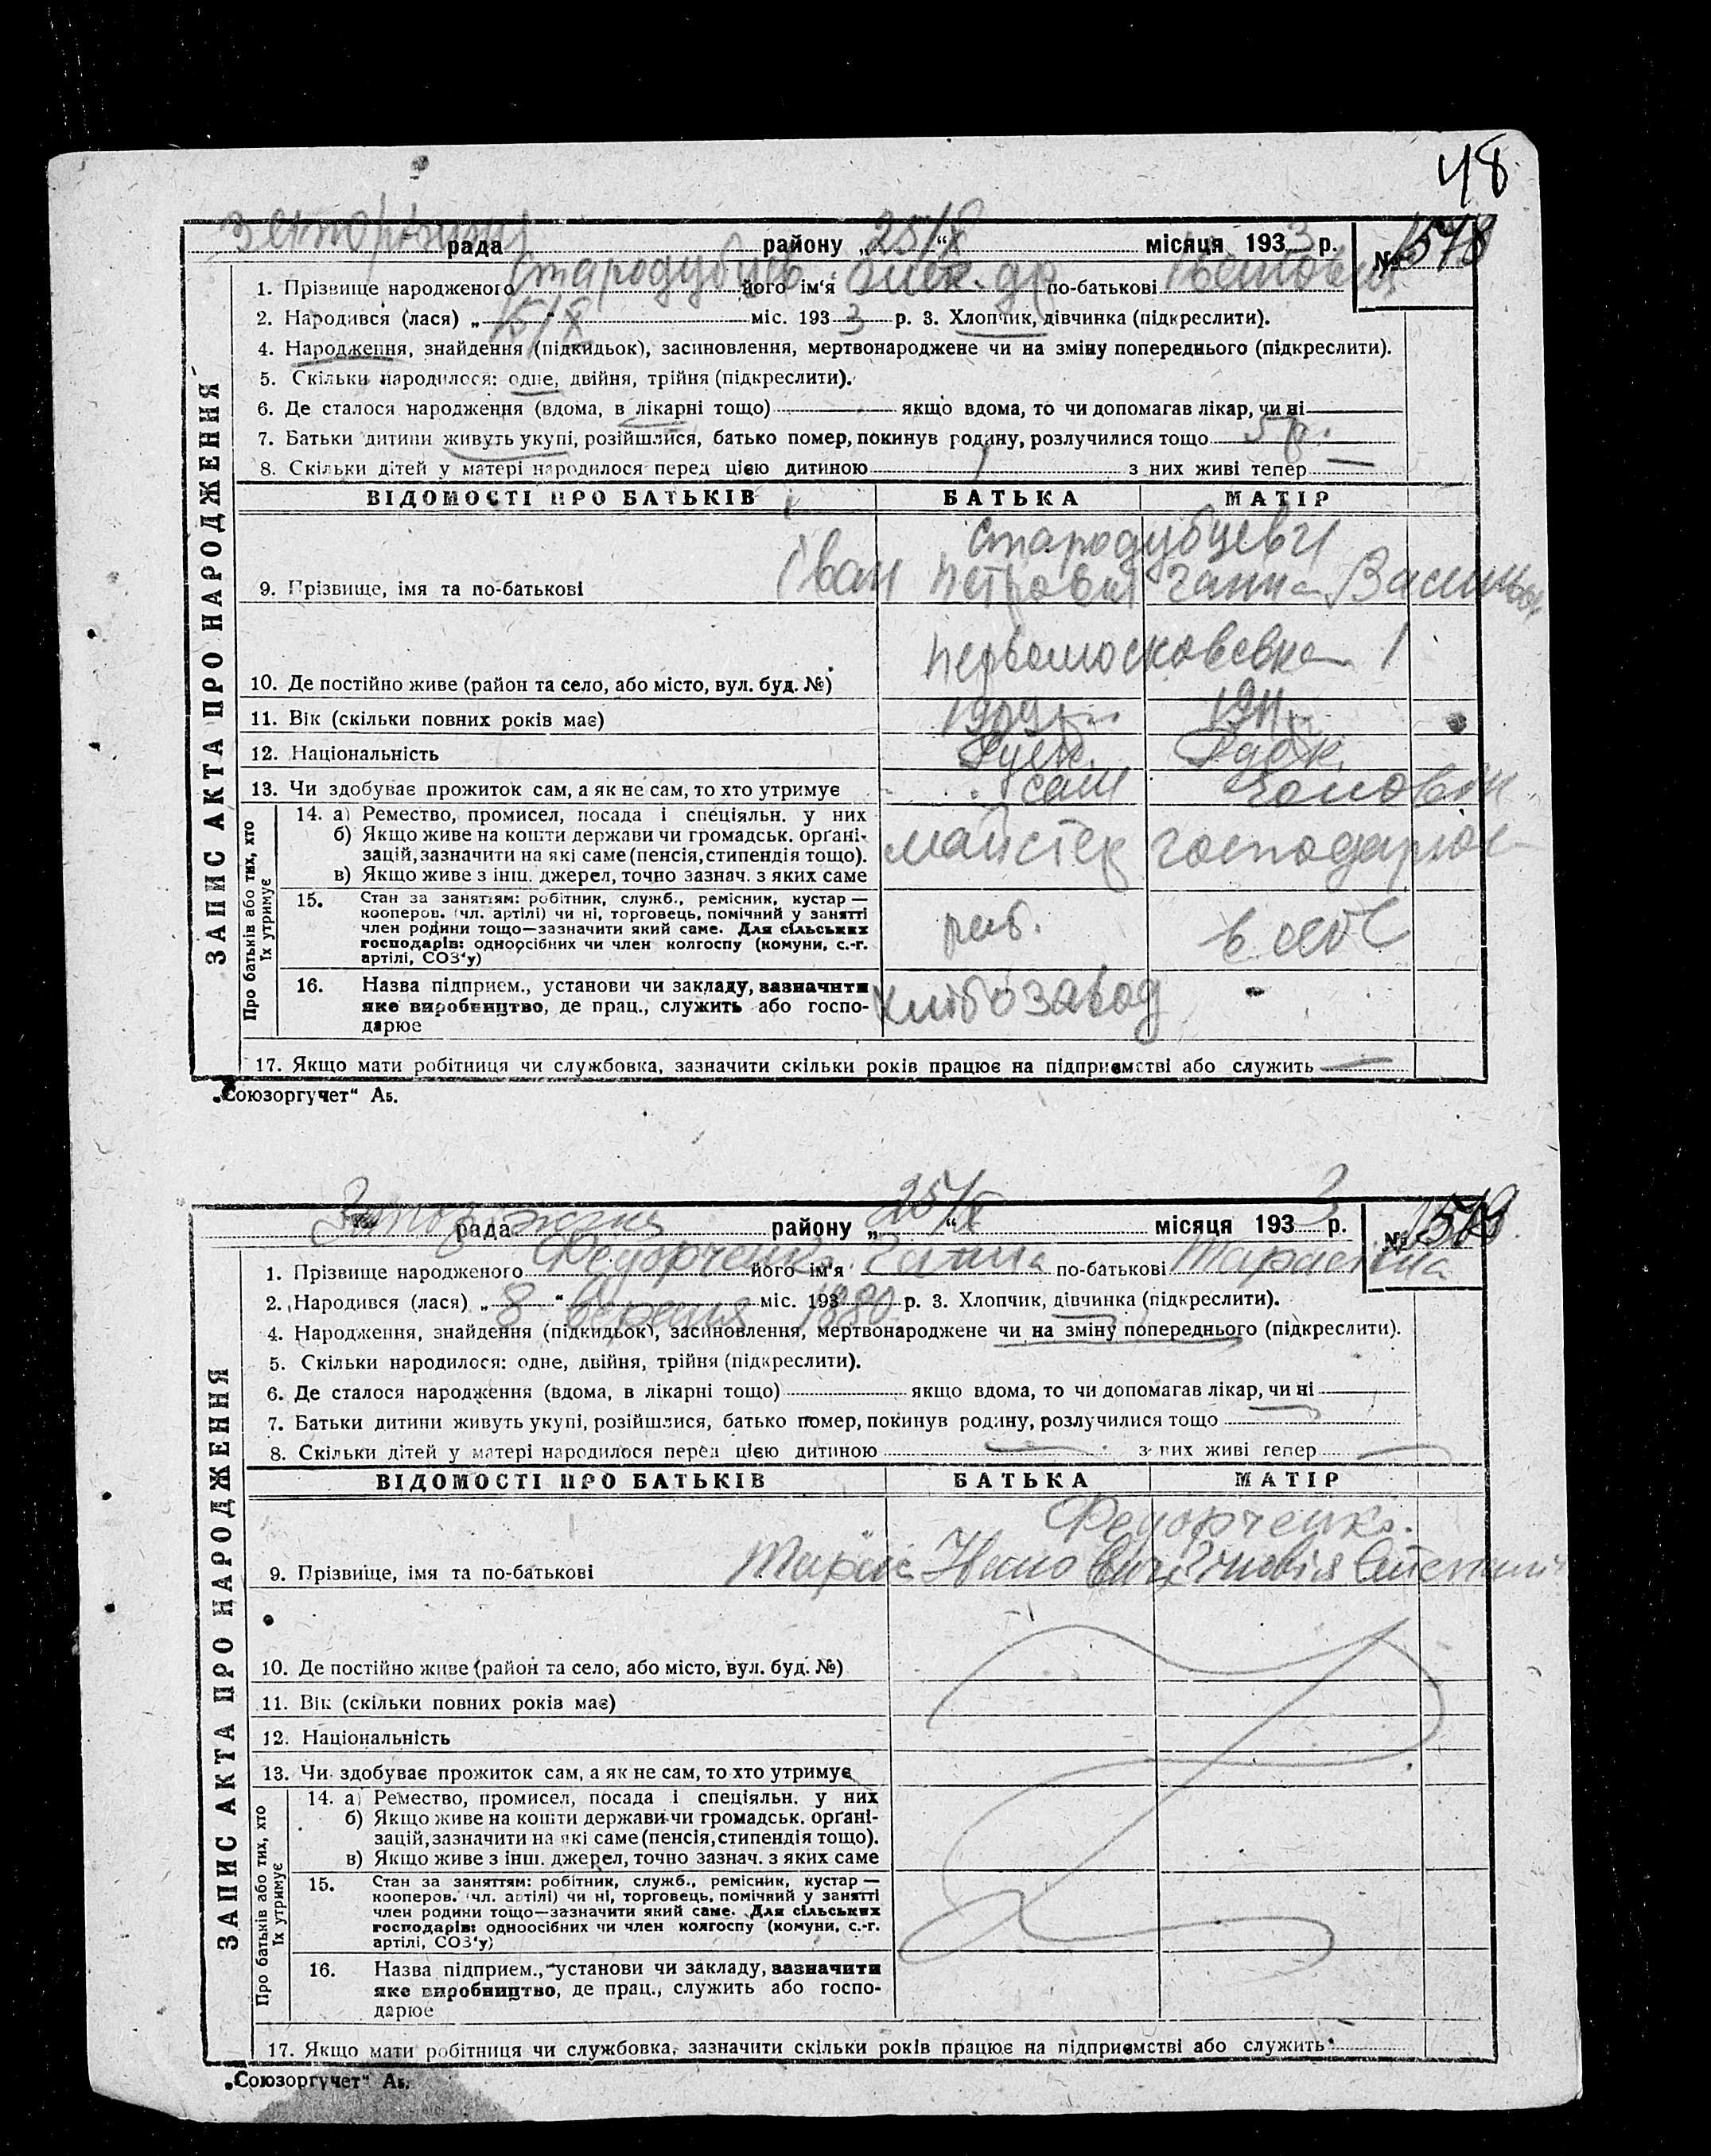 48
рада району „25/X“ місяця 1933 р. № 1578
1. Прізвище народженого Стародубцев його ім'я Олек-др по-батькові Іванович
2. Народився (лася) „15/X“ міс. 1933 р. 3. Хлопчик, дівчинка (підкреслити).
4. Народження, знайдення (підкидьок), засиновлення, мертвонароджене чи на зміну попереднього (підкреслити).
5. Скільки народилося: одне, двійня, трійня (підкреслити).
6. Де сталося народження (вдома, в лікарні тощо) якщо вдома, то чи допомагав лікар, чи ні
7. Батьки дитини живуть укупі, розійшлися, батько помер, покинув родину, розлучилися тощо 5 р.
8. Скільки дітей у матері народилося перед цією дитиною з них живі тепер
ЗАПИС АКТА ПРО НАРОДЖЕННЯ
ВІДОМОСТІ ПРО БАТЬКІВ БАТЬКА МАТІР
Стародубцеви
9. Прізвище, імя та по-батькові Іван Петрович Ганна
10. Де постійно живе (район та село, або місто, вул. буд. №)
11. Вік (скільки повних років має) 1909 1911
12. Національність
13. Чи здобуває прожиток сам, а як не сам, то хто утримує сам чоловік
Про батьків або тих, хто їх утримує
14. а) Ремество, промисел, посада і спеціяльн. у них
б) Якщо живе на кошти держави чи громадськ. орґані-
зацій, зазначити на які саме (пенсія, стипендія тощо). майстер
в) Якщо живе з інш. джерел, точно зазнач. з яких саме
15. Стан за заняттям: робітник, служб., ремісник, кустар —
кооперов. (чл. артілі) чи ні, торговець, помічний у занятті
член родини тощо—зазначити який саме. Для сільських
господарів: одноосібних чи член колгоспу (комуни, с.-г.
артілі, СОЗ'у)
роб.
16. Назва підприєм., установи чи закладу, зазначити
яке виробництво, де прац., служить або госпо-
дарює
хлібозавод
17. Якщо мати робітниця чи службовка, зазначити скільки років працює на підприємстві або служить
„Союзоргучет“ АБ.
рада району „25/X“ місяця 1933 р. № 1579
1. Прізвище народженого Федорченко його ім'я Ганна по-батькові Тарасівна
2. Народився (лася) „8“ вересня міс. 1880 р. 3. Хлопчик, дівчинка (підкреслити).
4. Народження, знайдення (підкидьок), засиновлення, мертвонароджене чи на зміну попереднього (підкреслити).
5. Скільки народилося: одне, двійня, трійня (підкреслити).
6. Де сталося народження (вдома, в лікарні тощо) якщо вдома, то чи допомагав лікар, чи ні
7. Батьки дитини живуть укупі, розійшлися, батько помер, покинув родину, розлучилися тощо
8. Скільки дітей у матері народилося перед цією дитиною з них живі тепер
ЗАПИС АКТА ПРО НАРОДЖЕННЯ
ВІДОМОСТІ ПРО БАТЬКІВ БАТЬКА МАТІР
Федорченко
9. Прізвище, імя та по-батькові Тарас
10. Де постійно живе (район та село, або місто, вул. буд. №)
11. Вік (скільки повних років має)
12. Національність
13. Чи здобуває прожиток сам, а як не сам, то хто утримує
Про батьків або тих, хто їх утримує
14. а) Ремество, промисел, посада і спеціяльн. у них
б) Якщо живе на кошти держави чи громадськ. орґані-
зацій, зазначити на які саме (пенсія, стипендія тощо).
в) Якщо живе з інш. джерел, точно зазнач. з яких саме
15. Стан за заняттям: робітник, служб., ремісник, кустар —
кооперов. (чл. артілі) чи ні, торговець, помічний у занятті
член родини тощо—зазначити який саме. Для сільських
господарів: одноосібних чи член колгоспу (комуни, с.-г.
артілі, СОЗ'у)
16. Назва підприєм., установи чи закладу, зазначити
яке виробництво, де прац., служить або госпо-
дарює
17. Якщо мати робітниця чи службовка, зазначити скільки років працює на підприємстві або служить
„Союзоргучет“ Аб.